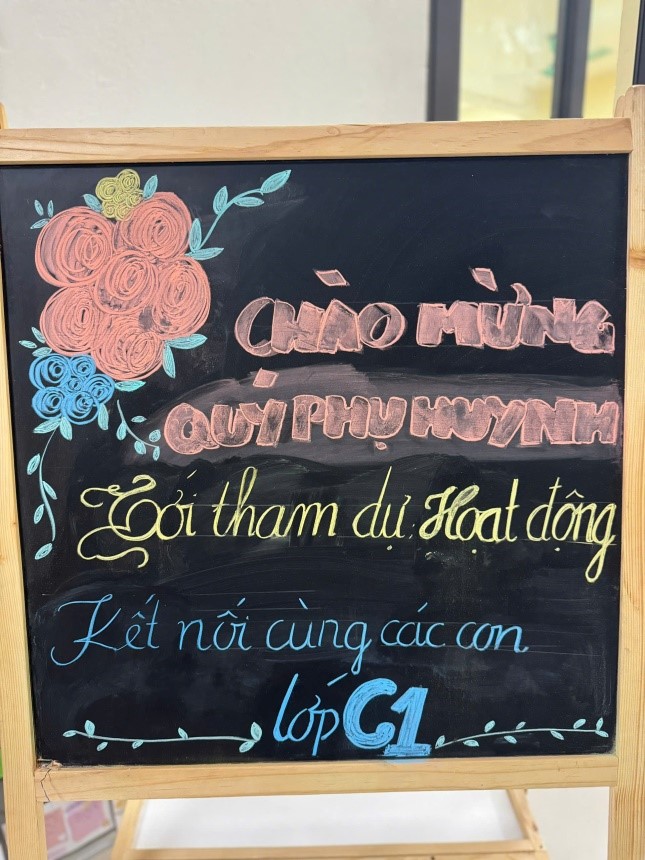 CHÀO MỪNG
QUÝ PHỤ HUYNH
Tới tham dự Hoạt động
Kết nối cùng các con
lớp C1